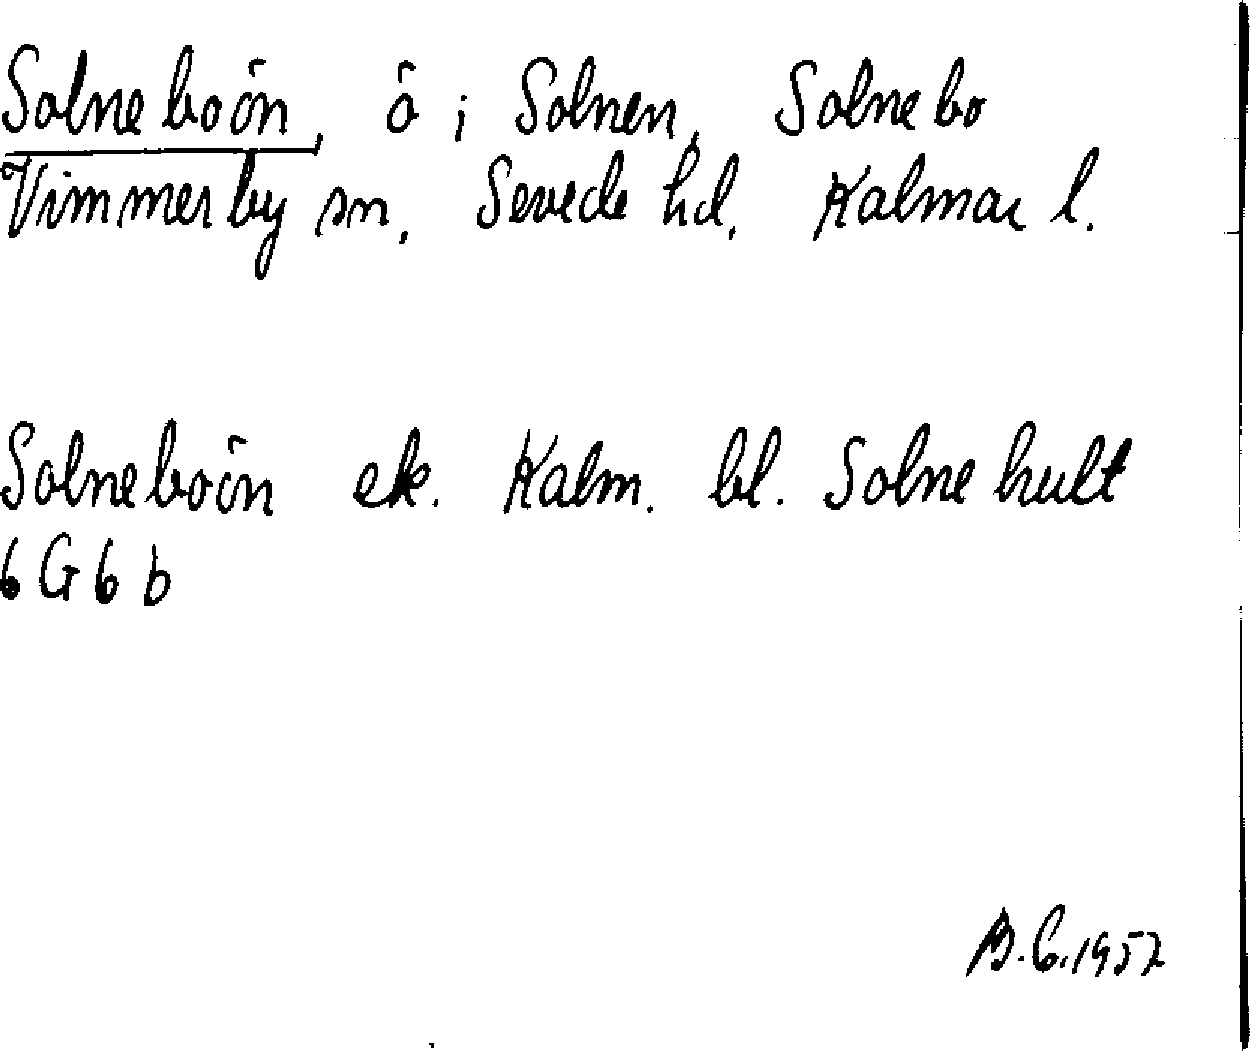 Solneboön, ö i Solnen, Solnebo
Vimmerby sn. Sevede hd. Kalmar l.
Solneboön ek. Kalm. bl. Solnehult
6 G 6 b
B.C. 1957